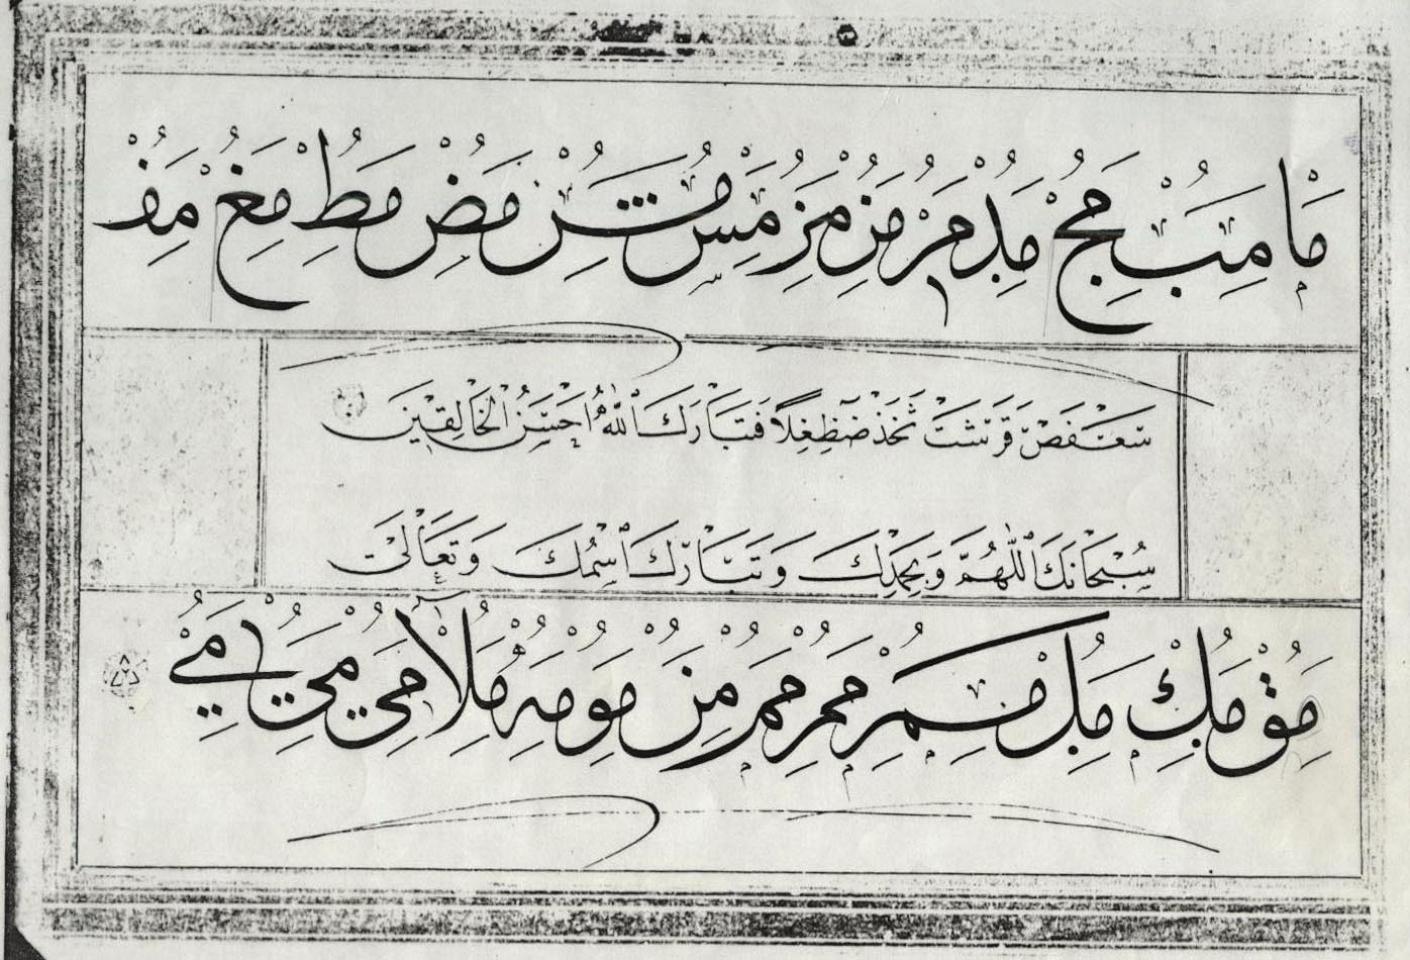 مَا مِبُ مَجُ مِدُ مَرُ مُزِ مَزِ مِسُ مُشِ مَضُ مَطُ مِغُ مِفُ
سَعْفَصْ قَرَشَتْ ثَخَذْ ضَظِغِلًا فَتَبَارَكَ اللّٰهُ اَحْسَنُ الْخَالِقِينَ
سُبْحَانَكَ اللّٰهُمَّ وَبِحَمْدِكَ وَتَبَارَكَ اسْمُكَ وَتَعَالَىٰ
مِقُ مُكِ مِلُ مِمُ مَمُ مَمُ مِنُ مُو مِهُ مُلَا مِي مِي مِي